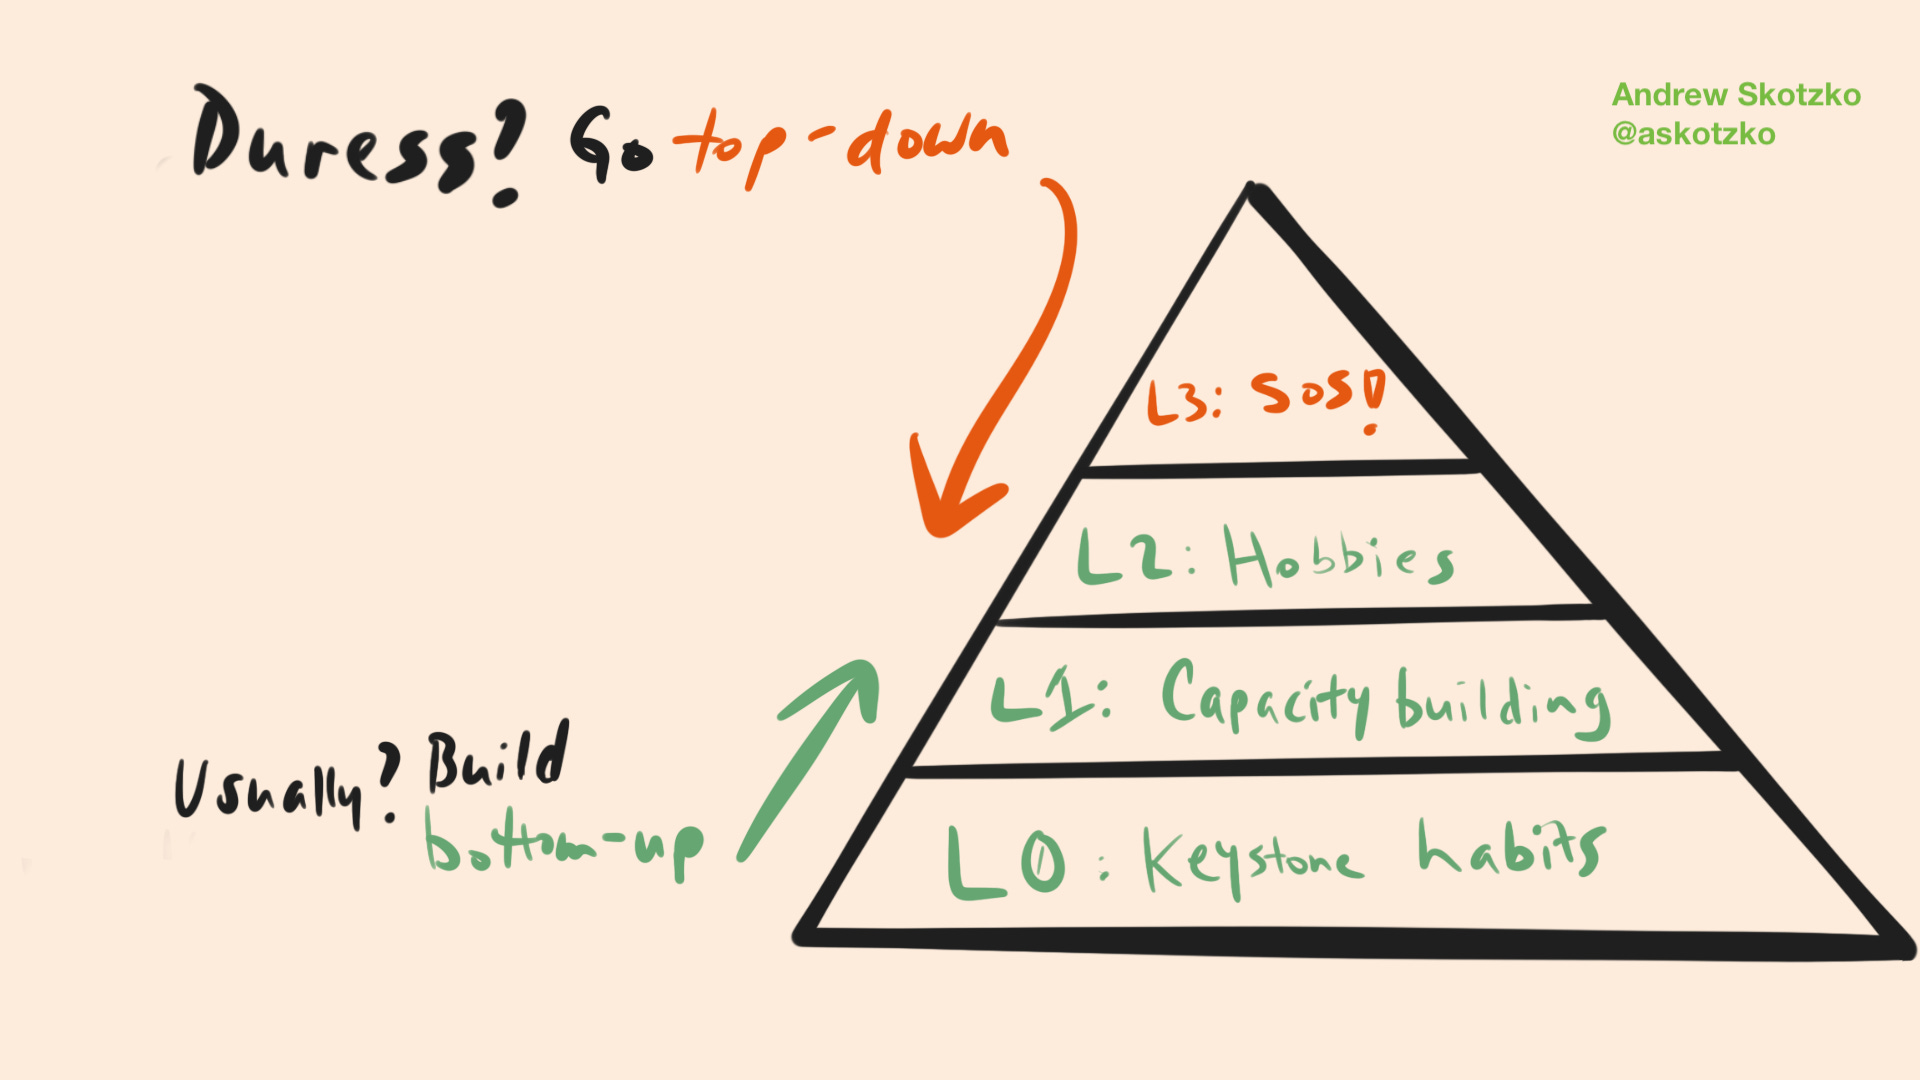 Duress? Go top-down
Andrew Skotzko
@askotzko
L3: SOS!
L2: Hobbies
L1: Capacity building
Usually? Build
bottom-up
L0: Keystone habits